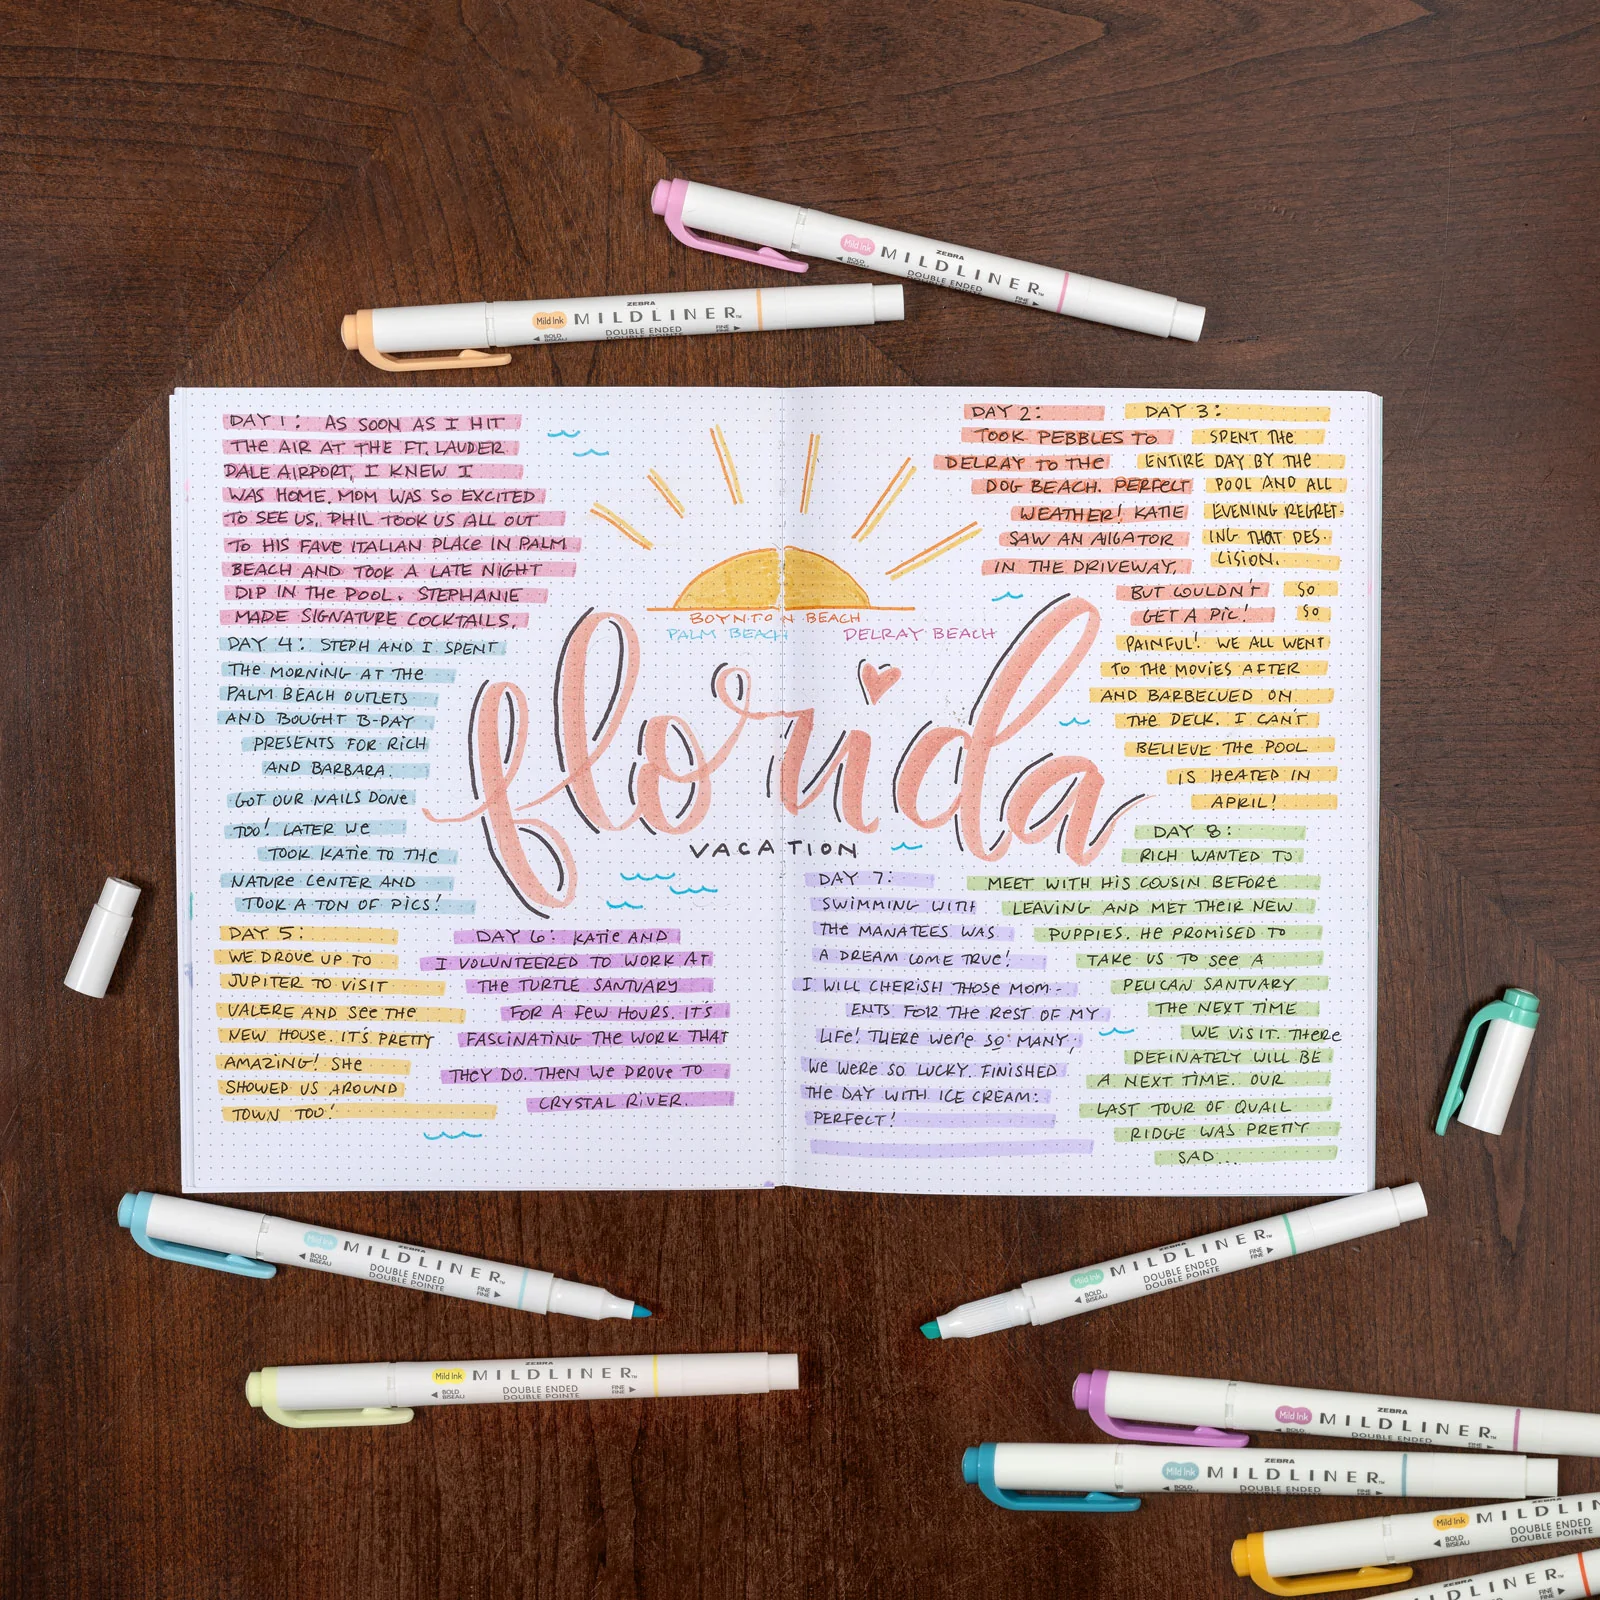 Mild Ink ZEBRA MILDLINER™
BOLD DOUBLE ENDED FINE
Mild Ink ZEBRA MILDLINER™
BOLD BISEAU DOUBLE ENDED DOUBLE POINTE FINE FINE
DAY 1: AS SOON AS I HIT
THE AIR AT THE FT. LAUDER
DALE AIRPORT, I KNEW I
WAS HOME. MOM WAS SO EXCITED
TO SEE US. PHIL TOOK US ALL OUT
TO HIS FAVE ITALIAN PLACE IN PALM
BEACH AND TOOK A LATE NIGHT
DIP IN THE POOL. STEPHANIE
MADE SIGNATURE COCKTAILS.
DAY 2:
TOOK PEBBLES TO
DELRAY TO THE
DOG BEACH. PERFECT
WEATHER! KATIE
SAW AN AIGATOR
IN THE DRIVEWAY.
BUT COULDN'T
GET A PIC!
DAY 3:
SPENT THE
ENTIRE DAY BY THE
POOL AND ALL
EVENING REGRET-
ING THAT DES-
CISION.
SO
SO
PAINFUL! WE ALL WENT
TO THE MOVIES AFTER
AND BARBECUED ON
THE DECK. I CAN'T
BELIEVE THE POOL
IS HEATED IN
APRIL!
BOYNTON BEACH
PALM BEACH DELRAY BEACH
florida
VACATION
DAY 4: STEPH AND I SPENT
THE MORNING AT THE
PALM BEACH OUTLETS
AND BOUGHT B-DAY
PRESENTS FOR RICH
AND BARBARA.
GOT OUR NAILS DONE
TOO! LATER WE
TOOK KATIE TO THE
NATURE CENTER AND
TOOK A TON OF PICS!
DAY 5:
WE DROVE UP TO
JUPITER TO VISIT
VALERE AND SEE THE
NEW HOUSE. IT'S PRETTY
AMAZING! SHE
SHOWED US AROUND
TOWN TOO!
DAY 6: KATIE AND
I VOLUNTEERED TO WORK AT
THE TURTLE SANTUARY
FOR A FEW HOURS. IT'S
FASCINATING THE WORK THAT
THEY DO. THEN WE DROVE TO
CRYSTAL RIVER.
DAY 7:
SWIMMING WITH
THE MANATEES WAS
A DREAM COME TRUE!
I WILL CHERISH THOSE MOM-
ENTS FOR THE REST OF MY
LIFE! THERE WERE SO MANY,
WE WERE SO LUCKY. FINISHED
THE DAY WITH ICE CREAM:
PERFECT!
DAY 8:
RICH WANTED TO
MEET WITH HIS COUSIN BEFORE
LEAVING AND MET THEIR NEW
PUPPIES. HE PROMISED TO
TAKE US TO SEE A
PELICAN SANTUARY
THE NEXT TIME
WE VISIT. THERE
DEFINATELY WILL BE
A NEXT TIME. OUR
LAST TOUR OF QUAIL
RIDGE WAS PRETTY
SAD...
Mild Ink ZEBRA MILDLINER™
BOLD BISEAU DOUBLE ENDED DOUBLE POINTE FINE FINE
Mild Ink ZEBRA MILDLINER™
BOLD BISEAU DOUBLE ENDED DOUBLE POINTE FINE FINE
Mild Ink ZEBRA MILDLINER™
BOLD BISEAU DOUBLE ENDED DOUBLE POINTE FINE FINE
Mild Ink ZEBRA MILDLINER™
BOLD BISEAU DOUBLE ENDED FINE
Mild Ink ZEBRA MILDLINER™
BOLD DOUBLE ENDED FINE
Mild Ink ZEBRA MILDLIN
BOLD BISEAU DOUBLE ENDED DOUBLE POINTE
ZEBRA MILDLINER™
DOUBLE ENDED FINE